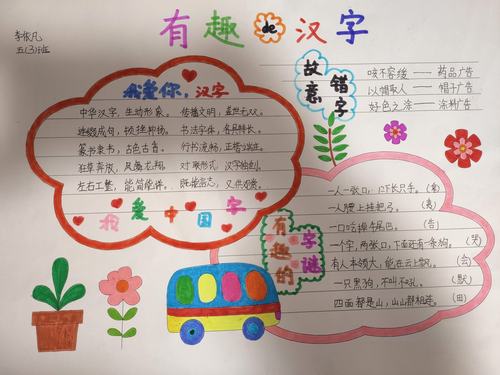 有趣de汉字
李依凡
五(3)班
我爱你,汉字
中华汉字,生动形象。 传播文明,盖世无双。
连缀成句,
书法字体,各具特长。
篆书隶书,古色古香。 行书流畅,正楷端庄。
狂草奔放,凤翥龙翔。 对联形式,汉字独创。
左右工整,能简能详。 既能言志,又供观赏。
我爱中国字
故意错字
咳不容缓——药品广告
以帽取人——帽子广告
好色之涂——涂料广告
有趣的字谜
一人一张口,口下长只手。(拿)
一人腰上挂把弓。(夷)
一口吃掉牛尾巴。(告)
一个字,两张口,下面还有一条狗。(哭)
有人本领大,能在云上飘。(会)
一只黑狗,不叫不吼。(默)
四面都是山,山山都相连。(田)